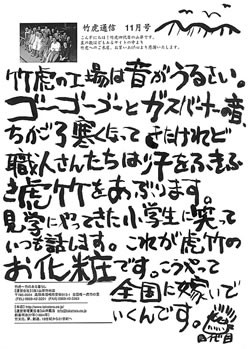 竹虎通信　11月号
こんにちには!竹虎四代目の山岸です。
竹虎の工場は音がうるさい。
ゴーゴーゴーとガスバーナーの音、
ちかごろ寒くなってきたけれど
職人さんたちは汗をふきふ
き虎竹をあぶります。
見学にやってきた小学生に笑って
いつも話します。これが虎竹の
お化粧です。こうやって
全国に嫁いで
いくんです。
四代目